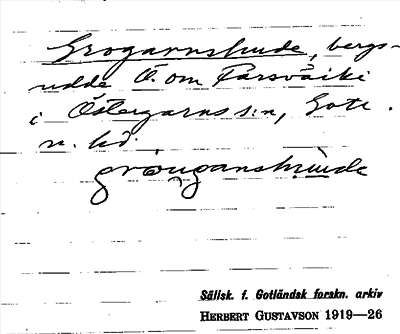 Grogarnshude, bergs-
udde Ö. om Farsväike
i Östergarns s:n, Gotl.
n. hd.
gråuganshùude
Sällsk. f. Gotländsk forskn. arkiv
HERBERT GUSTAVSON 1919—26